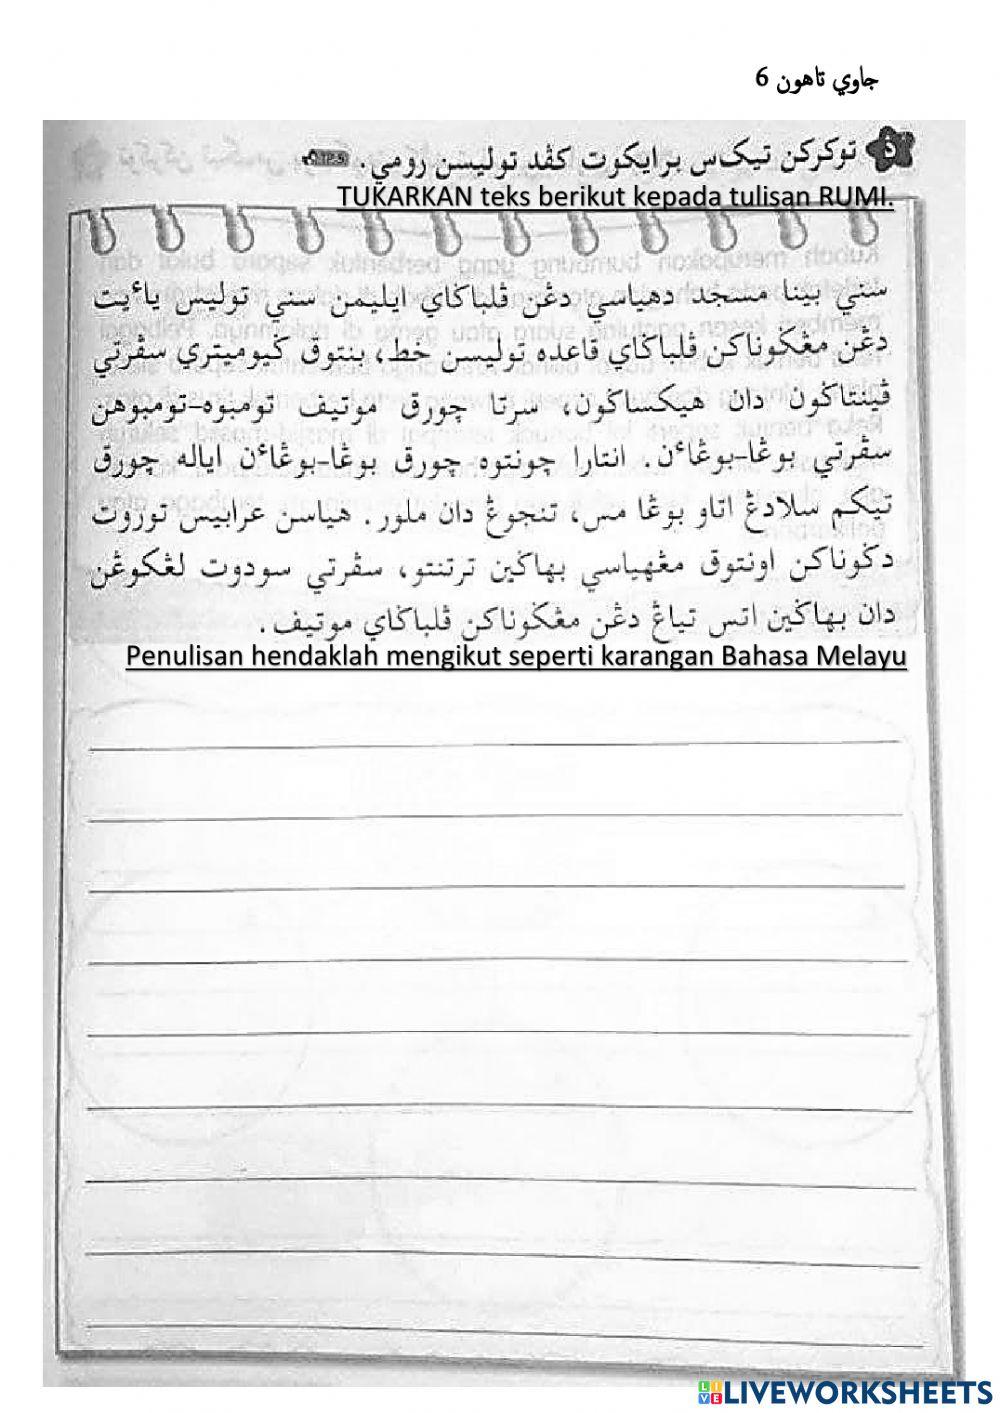 جاوي تاهون 6
5 توكركن تيک‌س برايكوت كڤد توليسن رومي.
TUKARKAN teks berikut kepada tulisan RUMI.
سني بينا مسجد دهياسي دڠن ڤلباݢاي ايليمن سني توليس ياءيت
دڠن مڠݢوناكن ڤلباݢاي قاعده توليسن خط، بنتوق ݢيوميتري سڤرتي
ڤينتاݢون دان هيكساݢون، سرتا چورق موتيف تومبوه-تومبوهن
سڤرتي بوڠا-بوڠاءن. انتارا چونتوه چورق بوڠا-بوڠاءن اياله چورق
تيكم سلادڠ اتاو بوڠا مس، تنجوڠ دان ملور. هياسن عرابيس توروت
دݢوناكن اونتوق مڠهياسي بهاݢين ترتنتو، سڤرتي سودوت لڠكوڠن
دان بهاݢين اتس تياڠ دڠن مڠݢوناكن ڤلباݢاي موتيف.
Penulisan hendaklah mengikut seperti karangan Bahasa Melayu
LIVEWORKSHEETS